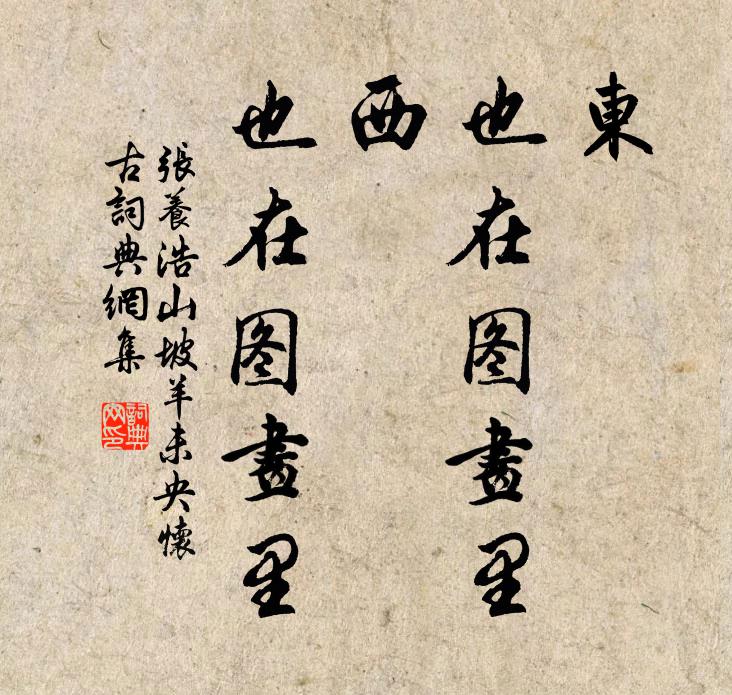 東
也在图畫里
西
也在图畫里
張養浩山坡羊未央懷
古詞典網集
詞典網印